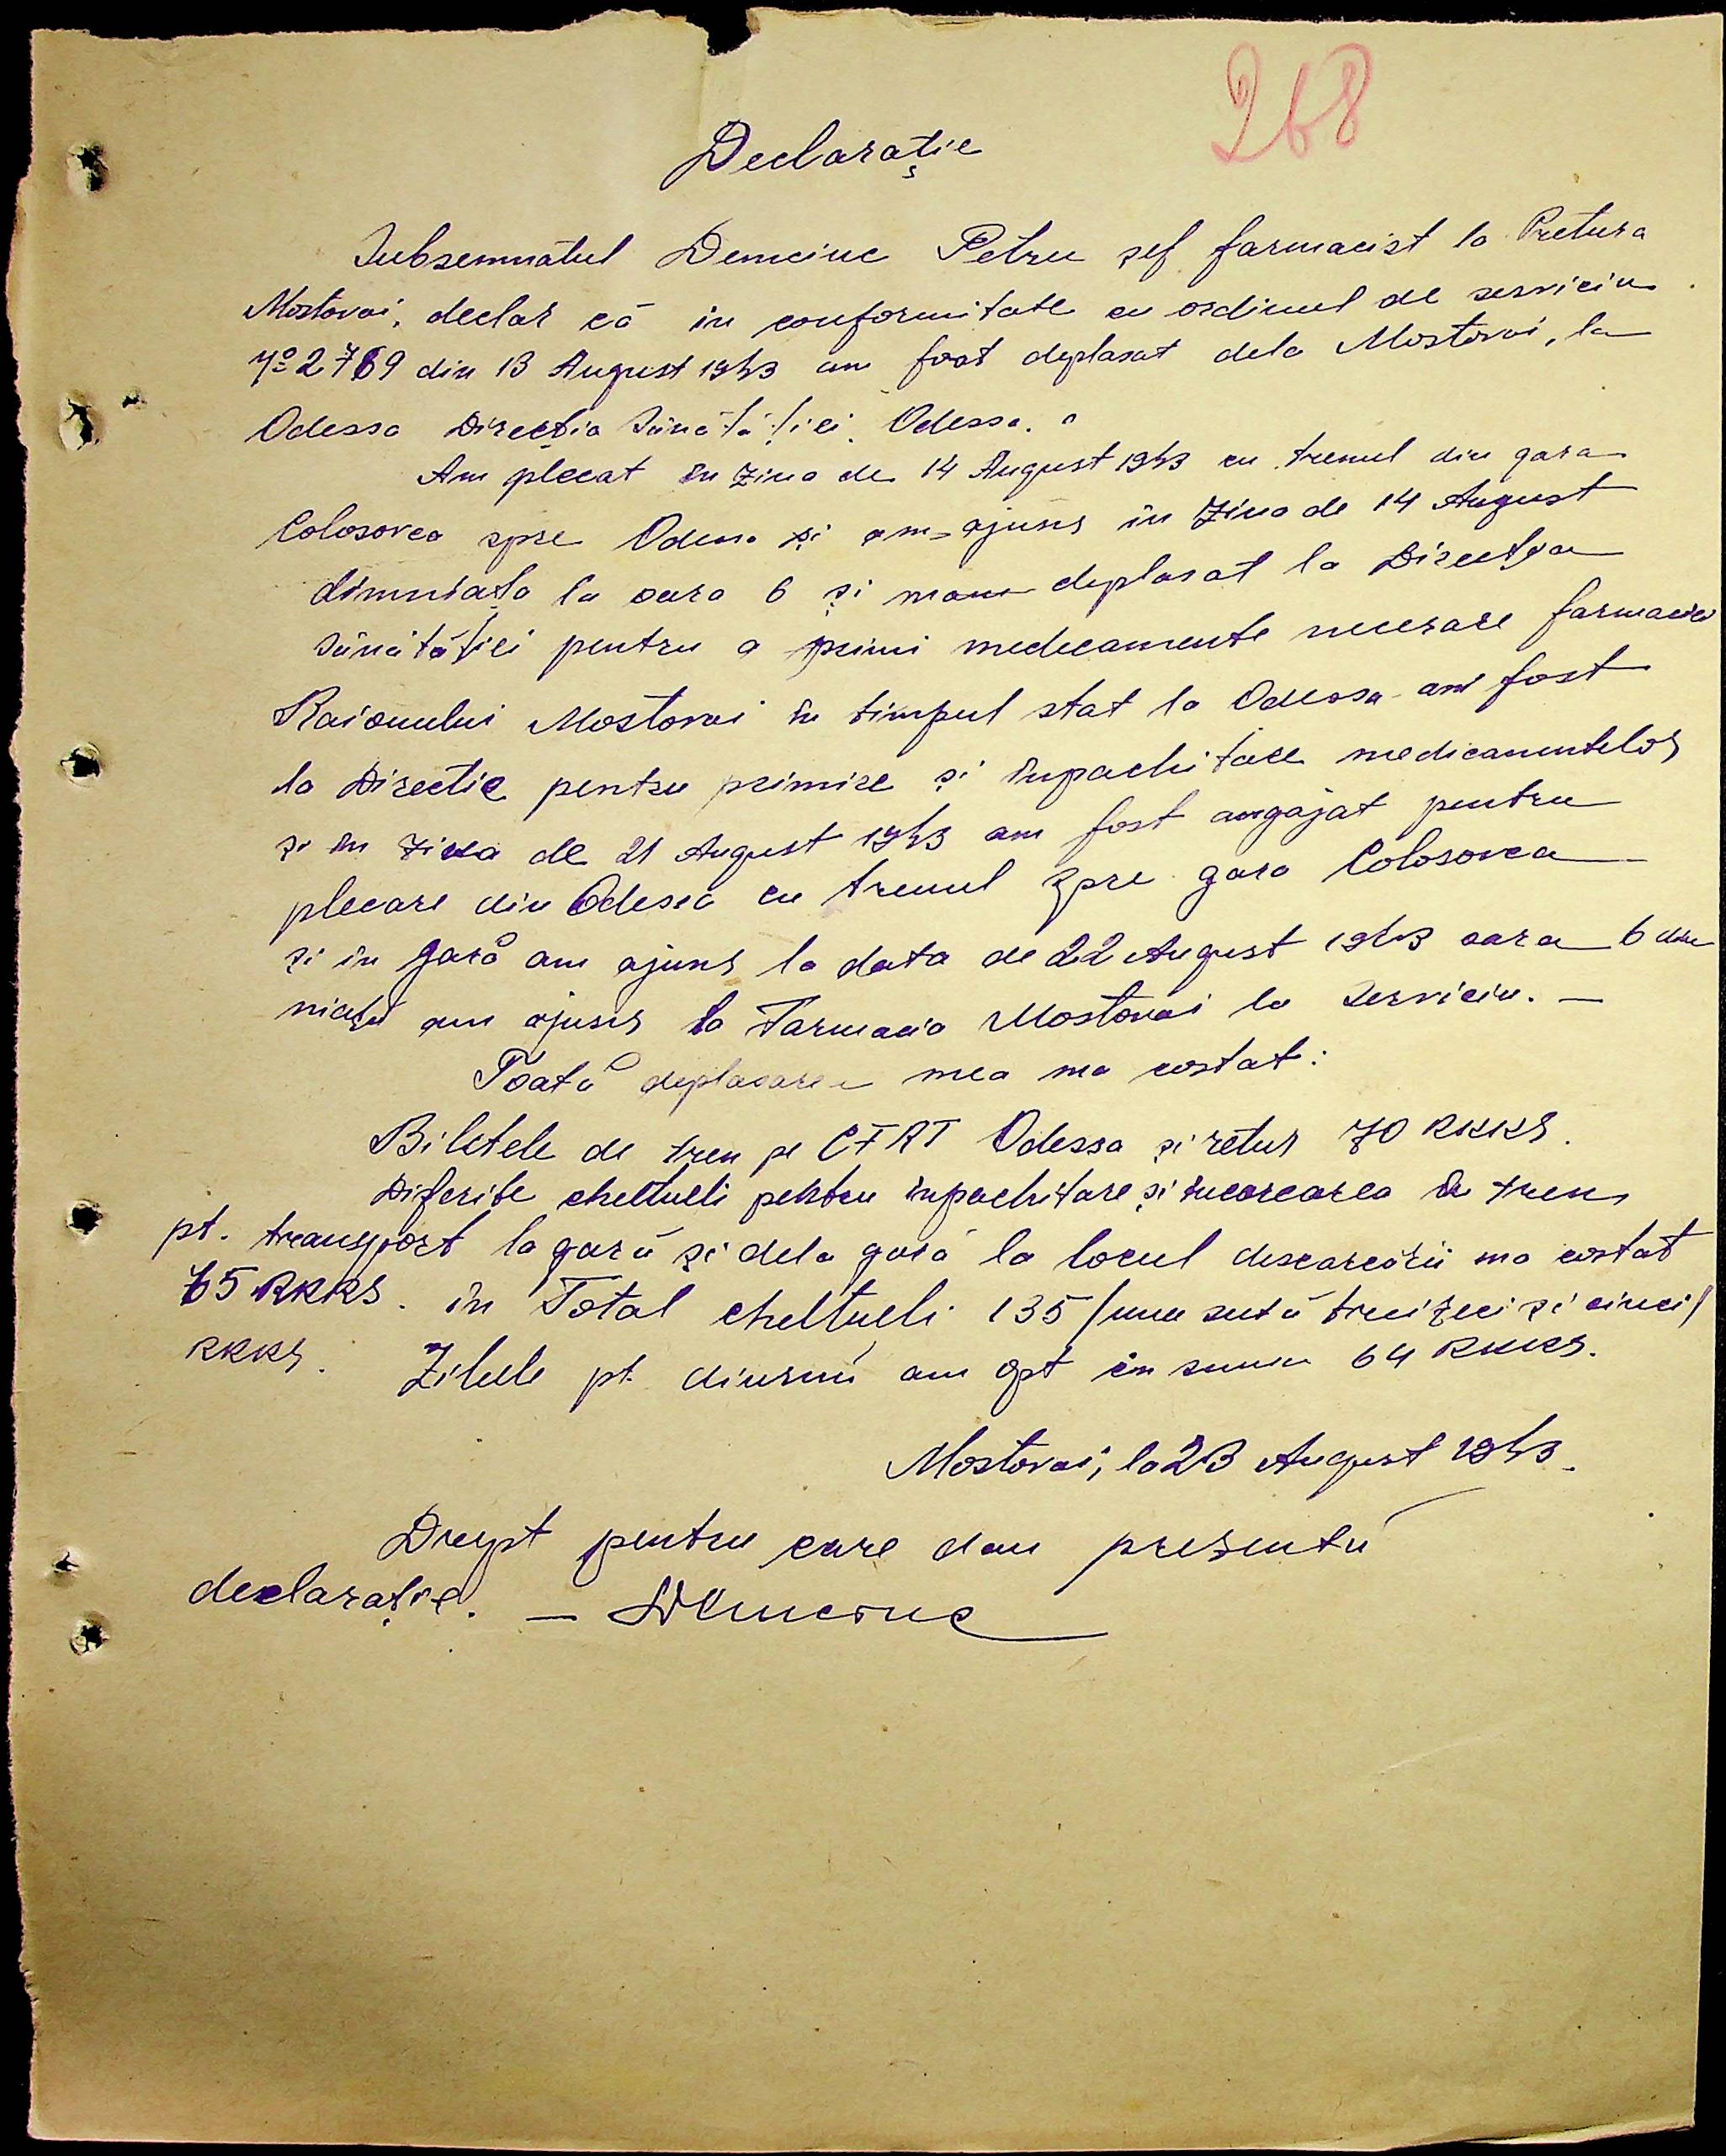 268
Declarație
Subsemnatul Demciuc Petru șef farmacist la Pretura
Mostovoi, declar că in conformitate cu ordinul de serviciu
No 2769 din 13 August 1943 am fost deplasat dela Mostovoi, la
Odessa Direcția Sănătăției Odessa.
Am plecat in ziua de 14 August 1943 cu trenul din gara
Colosovca spre Odessa și am ajuns in ziua de 14 August
dimniața la oara 6 și mam deplasat la Direcția
Sănătăției pentru a primi medicamente necesare farmaciei
Raionului Mostovoi in timpul stat la Odessa am fost
la Directie pentru primire și inpachitare medicamentelor
și in ziua de 21 August 1943 am fost angajat pentru
plecare din Odesa cu trenul spre gara Colosovca
și in gară am ajuns la data de 22 August 1943 oara 6 dim
niață am ajuns la Farmacia Mostovoi la serviciu. —
Toată deplasarea mea ma costat:
Biletele de tren pe CFRT Odessa și retur 70 RKKS.
Diferite cheltueli pentru inpachitare și incarcarea in tren
pt. transport la gară și dela gară la locul descarcării ma costat
65 RKKS. in Total cheltueli 135 /una sută treizeci și cinci/
RKKS. Zilele pt. diurnă am opt in suma 64 RKKS.
Mostovoi, la 23 August 1943.
Drept pentru care dau presentă
declarație. — Demciuc